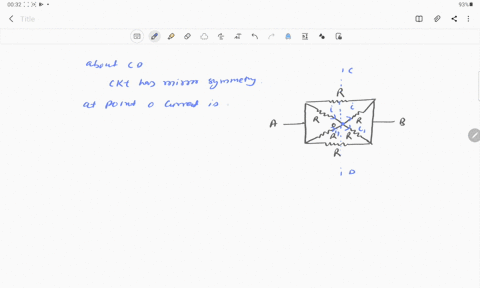 00:32
93%
Title
about CD
CKt has mirror symmetry.
at point o current is.
C
R
i i
A R R B
R R i1
R
D